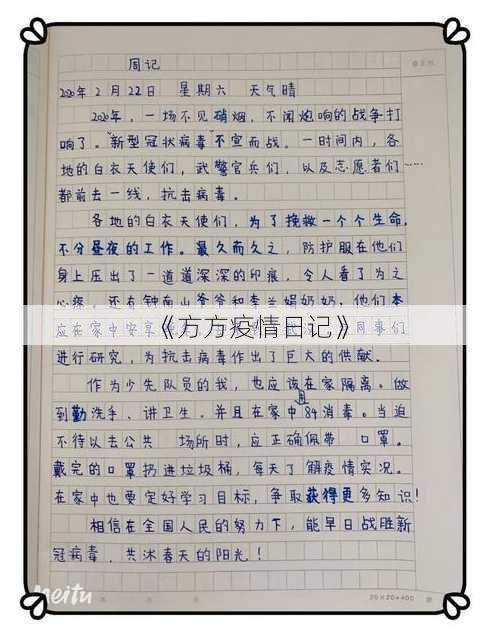 周记
2020年2月22日 星期六 天气晴
2020年，一场不见硝烟，不闻炮响的战争打
响了。"新型冠状病毒"不宣而战。一时间内，各
地的白衣天使们，武警官兵们，以及志愿者们……
都前去一线，抗击病毒。
各地的白衣天使们，为了挽救一个个生命，
不分昼夜的工作。最久而久之，防护服在他们
身上压出了一道道深深的印痕，令人看了为之
心疼。还有钟南山爷爷和李兰娟奶奶，他们本
《方方疫情日记》
应在家中安享 同事们
进行研究，为抗击病毒作出了巨大的供献。
作为少先队员的我，也应该在家隔离。做
到勤洗手、讲卫生。并且在家中用84消毒。当迫
不得以去公共 场所时，应正确佩带 口罩。
戴完的口罩扔进垃圾桶，每天了解疫情实况。
在家中也要定好学习目标，争取获得更多知识！
相信在全国人民的努力下，能早日战胜新
冠病毒，共沐春天的阳光！
Meitu
20×20=400